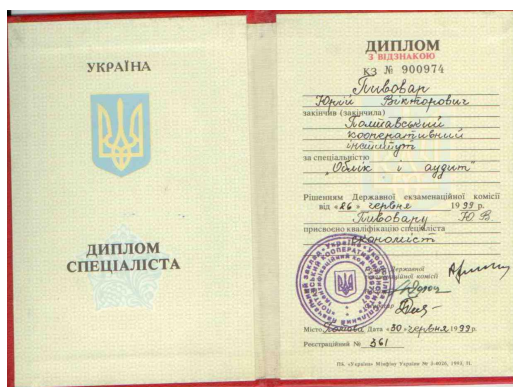 УКРАЇНА
ДИПЛОМ
СПЕЦІАЛІСТА
ДИПЛОМ
З ВІДЗНАКОЮ
КЗ № 900974
Пивовар
Юрій Вікторович
закінчив (закінчила)
Полтавський
кооперативний
інститут
за спеціальністю
"Облік і аудит"
Рішенням Державної екзаменаційної комісії
від «26» червня 1999 р.
Пивовару Ю В
присвоєно кваліфікацію спеціаліста
економіст
Державної
комісії
Місто Полтава Дата «30» червня 1999р.
Реєстраційний № 361